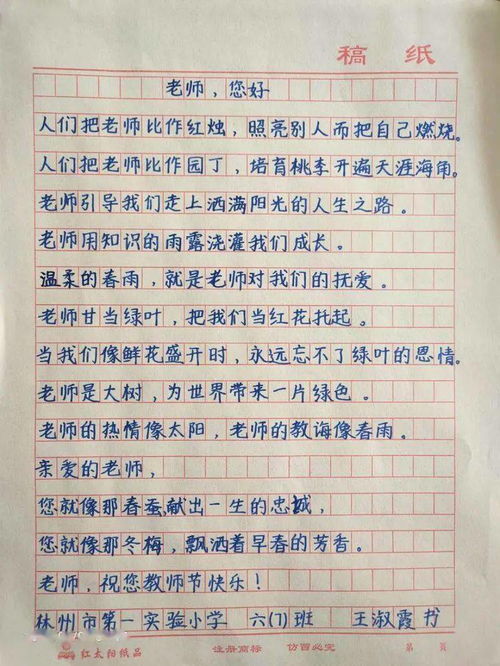 稿 纸
老师，您好
人们把老师比作红烛，照亮别人而把自己燃烧。
人们把老师比作园丁，培育桃李开遍天涯海角。
老师引导我们走上洒满阳光的人生之路。
老师用知识的雨露浇灌我们成长。
温柔的春雨，就是老师对我们的抚爱。
老师甘当绿叶，把我们当红花托起。
当我们像鲜花盛开时，永远忘不了绿叶的恩情。
老师是大树，为世界带来一片绿色。
老师的热情像太阳，老师的教诲像春雨。
亲爱的老师，
您就像那春蚕，献出一生的忠诚，
您就像那冬梅，飘洒着早春的芳香。
老师，祝您教师节快乐！
林州市第一实验小学 六(7)班 王淑霞书
红太阳纸品 注册商标 仿冒必究 第 页